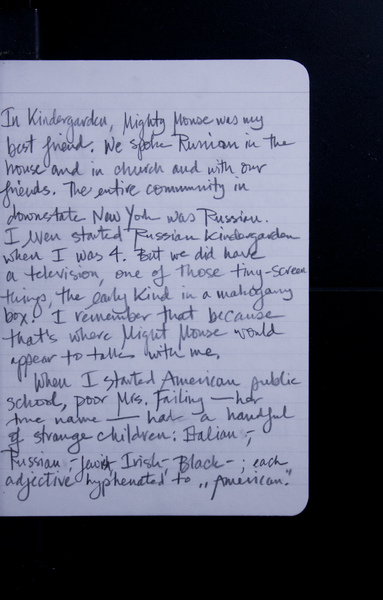 In Kindergarden, Mighty Mouse was my
best friend. We spoke Russian in the
house and in church and with our
friends. The entire community in
downstate New York was Russian.
I even started Russian Kindergarden
when I was 4. But we did have
a television, one of those tiny-screen
things, the early kind in a mahogany
box. I remember that because
that's where Might Mouse would
appear to talk with me.
When I started American public
school, poor Mrs. Failing — her
true name — had a handful
of strange children: Italian-,
Russian-, Jewish, Irish-, Black-; each
adjective hyphenated to „American."